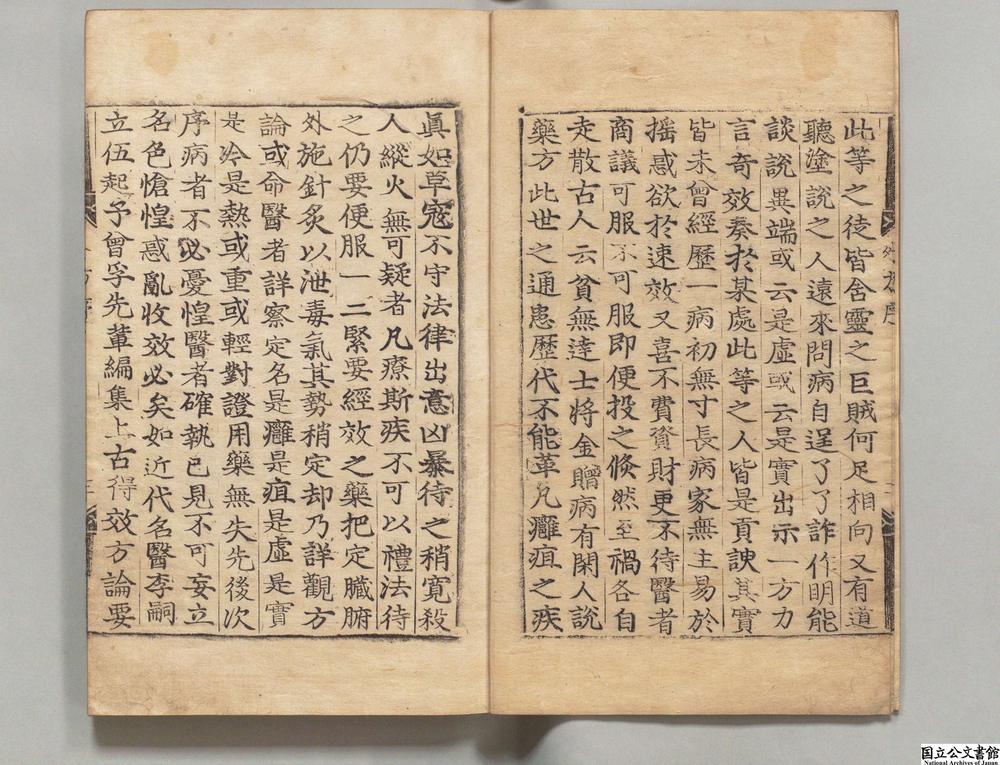 此等之徒皆舍靈之巨賊何足相向又有道
聽塗說之人遠來問病自逞了了詐作明能
談說異端或云是虛或云是實出示一方力
言奇效奏於某處此等之人皆是貢諛其實
皆未曾經歷一病初無寸長病家無主易於
搖惑欲於速效又喜不費資財更不待醫者
商議可服不可服即便投之倏然至禍各自
走散古人云貧無達士將金贈病有閑人說
藥方此世之通患歷代不能革凡癰疽之疾
眞如草寇不守法律出意凶暴待之稍寬殺
人縱火無可疑者凡療斯疾不可以禮法待
之仍要便服一二緊要經效之藥把定臟腑
外施針灸以泄毒氣其勢稍定却乃詳觀方
論或命醫者詳察定名是癰是疽是虛是實
是冷是熱或重或輕對證用藥無失先後次
序病者不必憂惶醫者確執已見不可妄立
名色愴惶惑亂收效必矣如近代名醫李嗣
立伍起予曾孚先輩編集上古得效方論要
外方序
二
三
国立公文書館
National Archives of Japan